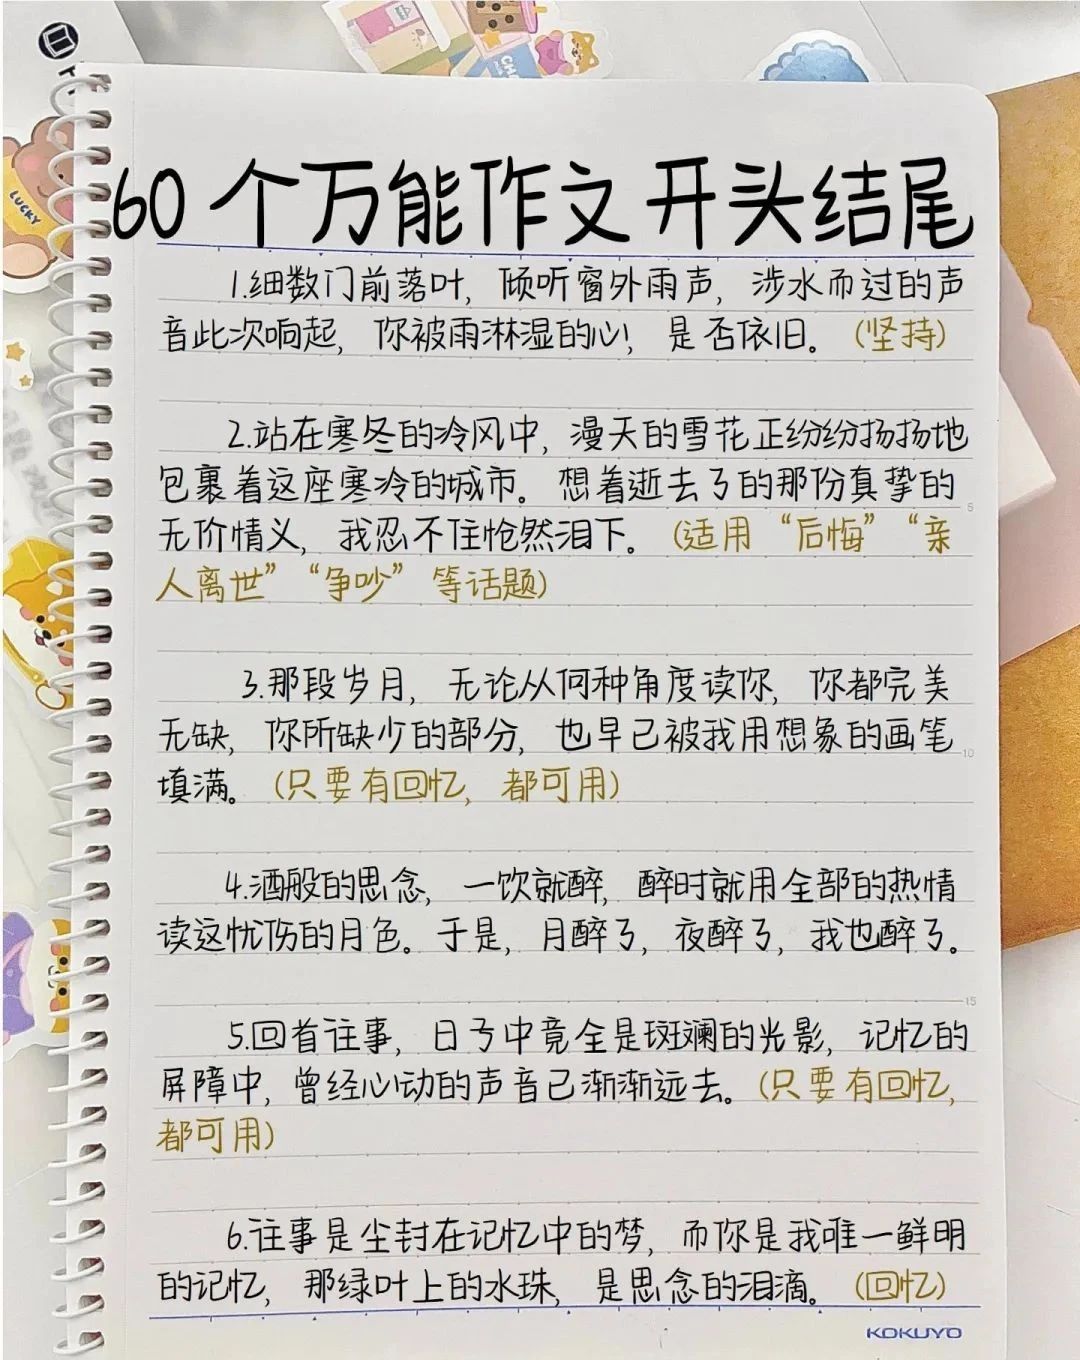 60个万能作文开头结尾
1.细数门前落叶，倾听窗外雨声，涉水而过的声
音此次响起，你被雨淋湿的心！是否依旧。（坚持）
2.站在寒冬的冷风中，漫天的雪花正纷纷扬扬地
包裹着这座寒冷的城市。想着逝去了的那份真挚的
无价情义，我忍不住怆然泪下。（适用“后悔”“亲
人离世”“争吵”等话题）
3.那段岁月，无论从何种角度读你，你都完美
无缺，你所缺少的部分，也早已被我用想象的画笔
填满。（只要有回忆，都可用）
4.酒般的思念，一饮就醉，醉时就用全部的热情
读这忧伤的月色。于是，月醉了，夜醉了，我也醉了。
5.回首往事，日子中竟全是斑斓的光影，记忆的
屏障中，曾经心动的声音已渐渐远去。（只要有回忆，
都可用）
6.往事是尘封在记忆中的梦，而你是我唯一鲜明
的记忆，那绿叶上的水珠，是思念的泪滴。（回忆）
KOKUYO
LUCKY
5
10
15